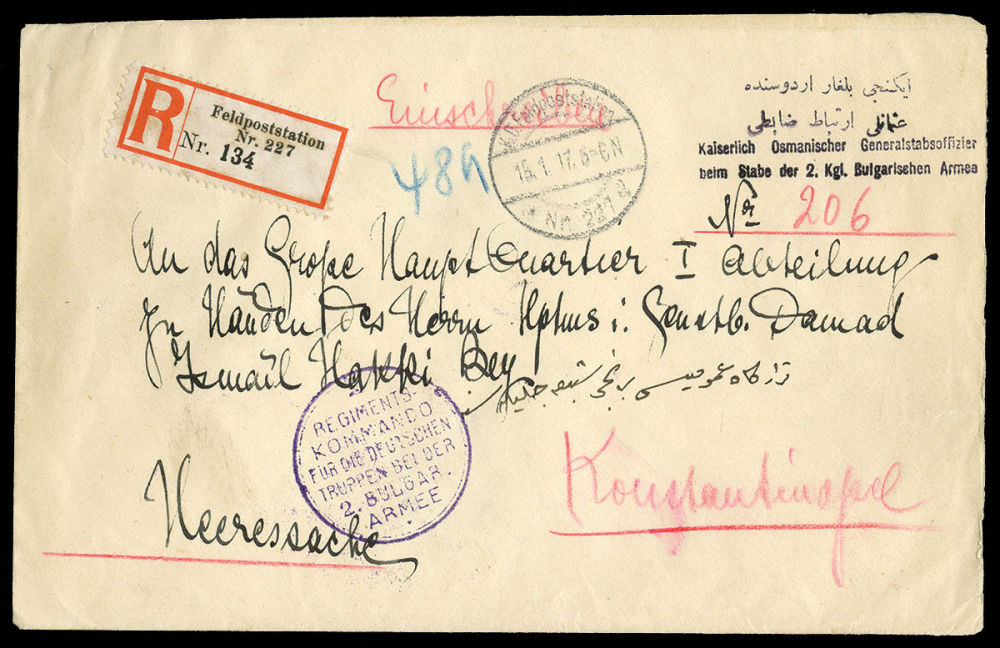 R
Feldpoststation
Nr. 227
Nr. 134
Einschreiben
48h
K.D. Feldpoststation
15.1.17. 5-6 N
* Nr. 227 a
ایکنجی بلغار اردوسنده
عثمانلی ارتباط ضابطی
Kaiserlich Osmanischer Generalstabsoffizier
beim Stabe der 2. Kgl. Bulgarischen Armee
Nr 206
An das Große Haupt Quartier I Abteilung
Zu Händen des Herrn Hptms i. Genstb. Damad
Ismaïl Hakki Bey
REGIMENTS-
KOMMANDO
FÜR DIE DEUTSCHEN
TRUPPEN BEI DER
2. BULGAR.
ARMEE
Konstantinopel
Heeressache